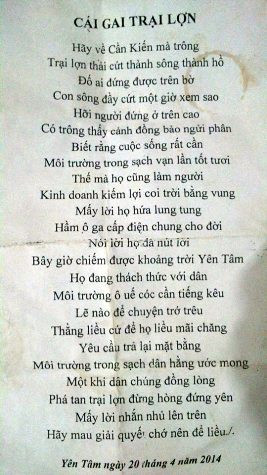 CÁI GAI TRẠI LỢN
Hãy về Cẩn Kiến mà trông
Trại lợn thải cứt thành sông thành hồ
Đố ai đứng được trên bờ
Con sông đầy cứt một giờ xem sao
Hỡi người đứng ở trên cao
Có trông thấy cánh đồng bào ngửi phân
Biết rằng cuộc sống rất cần
Môi trường trong sạch vạn lần tốt tươi
Thế mà họ cũng làm người
Kinh doanh kiếm lợi coi trời bằng vung
Mấy lời họ hứa lung tung
Hầm ô ga cấp điện chung cho đời
Nói lời họ đã nút lời
Bây giờ chiếm được khoảng trời Yên Tâm
Họ đang thách thức với dân
Môi trường ô uế cóc cần tiếng kêu
Lẽ nào để chuyện trớ trêu
Thằng liều cứ để họ liều mãi chăng
Yêu cầu trả lại mặt bằng
Môi trường trong sạch dân hằng ước mong
Một khi dân chúng đồng lòng
Phá tan trại lợn đừng hòng đứng yên
Mấy lời nhắn nhủ lên trên
Hãy mau giải quyết chớ nên để liều./.
Yên Tâm ngày 20 tháng 4 năm 2014